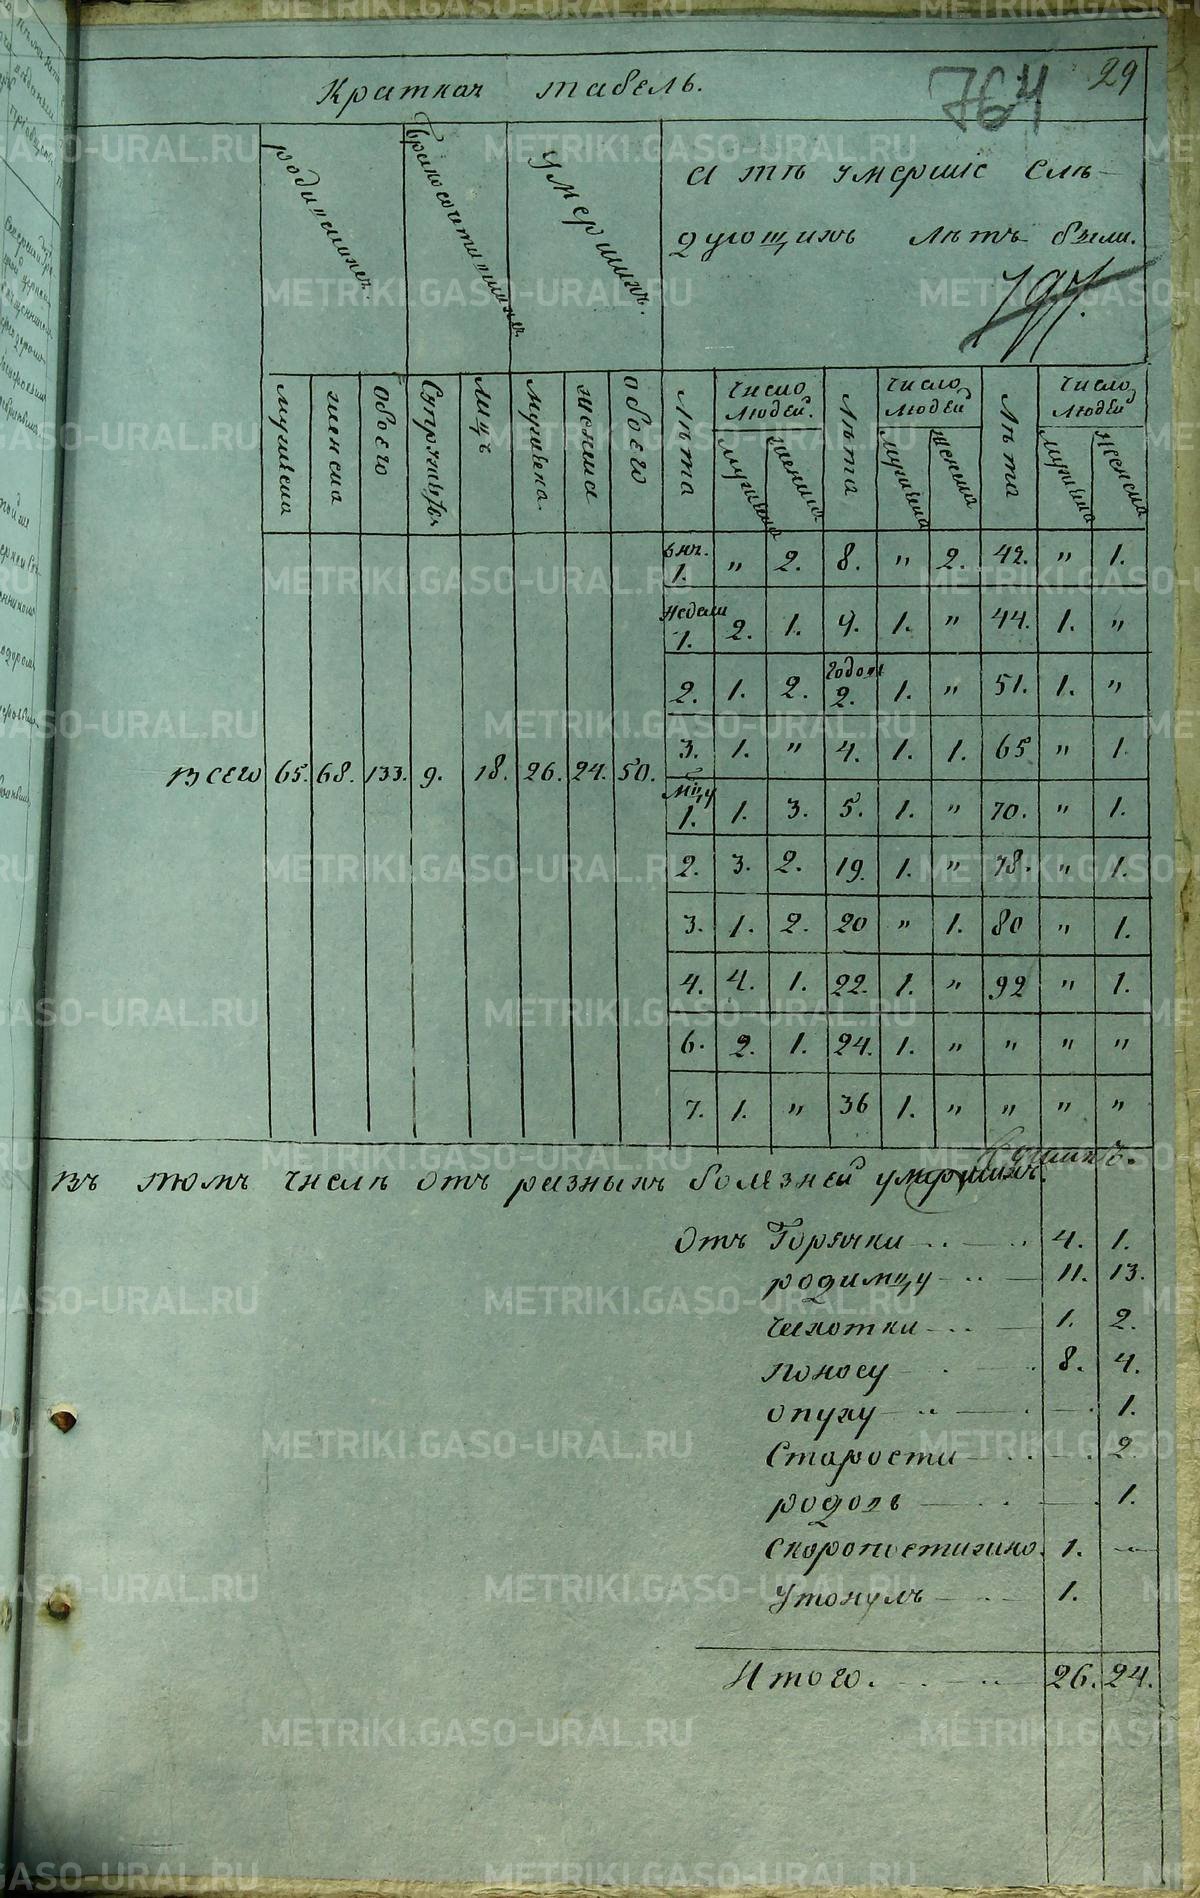 29
764
Краткая табель.
родившихся.
Бракосочетавшихся
Умершихъ.
А тѣ умершіе слѣ-
дующихъ лѣтъ были.
797.
мужеска
женска
Обоего
Супружествъ
Лицъ
мужеска.
женска
обоего
Лѣта
Число людей.
мужеска
женска
Лѣта
Число людей
мужеска
женска
Лѣта
Число людей
мужеска
Женска
всего 65. 68. 133. 9. 18. 26. 24. 50.
1. " 2. 8. " 2. 42. " 1.
Недели 1. 2. 1. 9. 1. " 44. 1. "
2. 1. 2. Годовъ 2. 1. " 51. 1. "
3. 1. " 4. 1. 1. 65 " 1.
Мцу 1. 1. 3. 5. 1. " 70. " 1.
2. 3. 2. 19. 1. " 78. " 1.
3. 1. 2. 20 " 1. 80 " 1.
4. 4. 1. 22. 1. " 92 " 1.
6. 2. 1. 24. 1. " " " "
7. 1. " 36 1. " " " "
въ томъ числѣ отъ разныхъ болезней умершихъ.
Отъ Горячки 4. 1.
родимцу 11. 13.
чахотки 1. 2.
поносу 8. 4.
опуху 1.
Старости 2
родовъ 1.
скоропостижно. 1. —
Утонулъ 1.
Итого. 26. 24.
METRIKI.GASO-URAL.RU